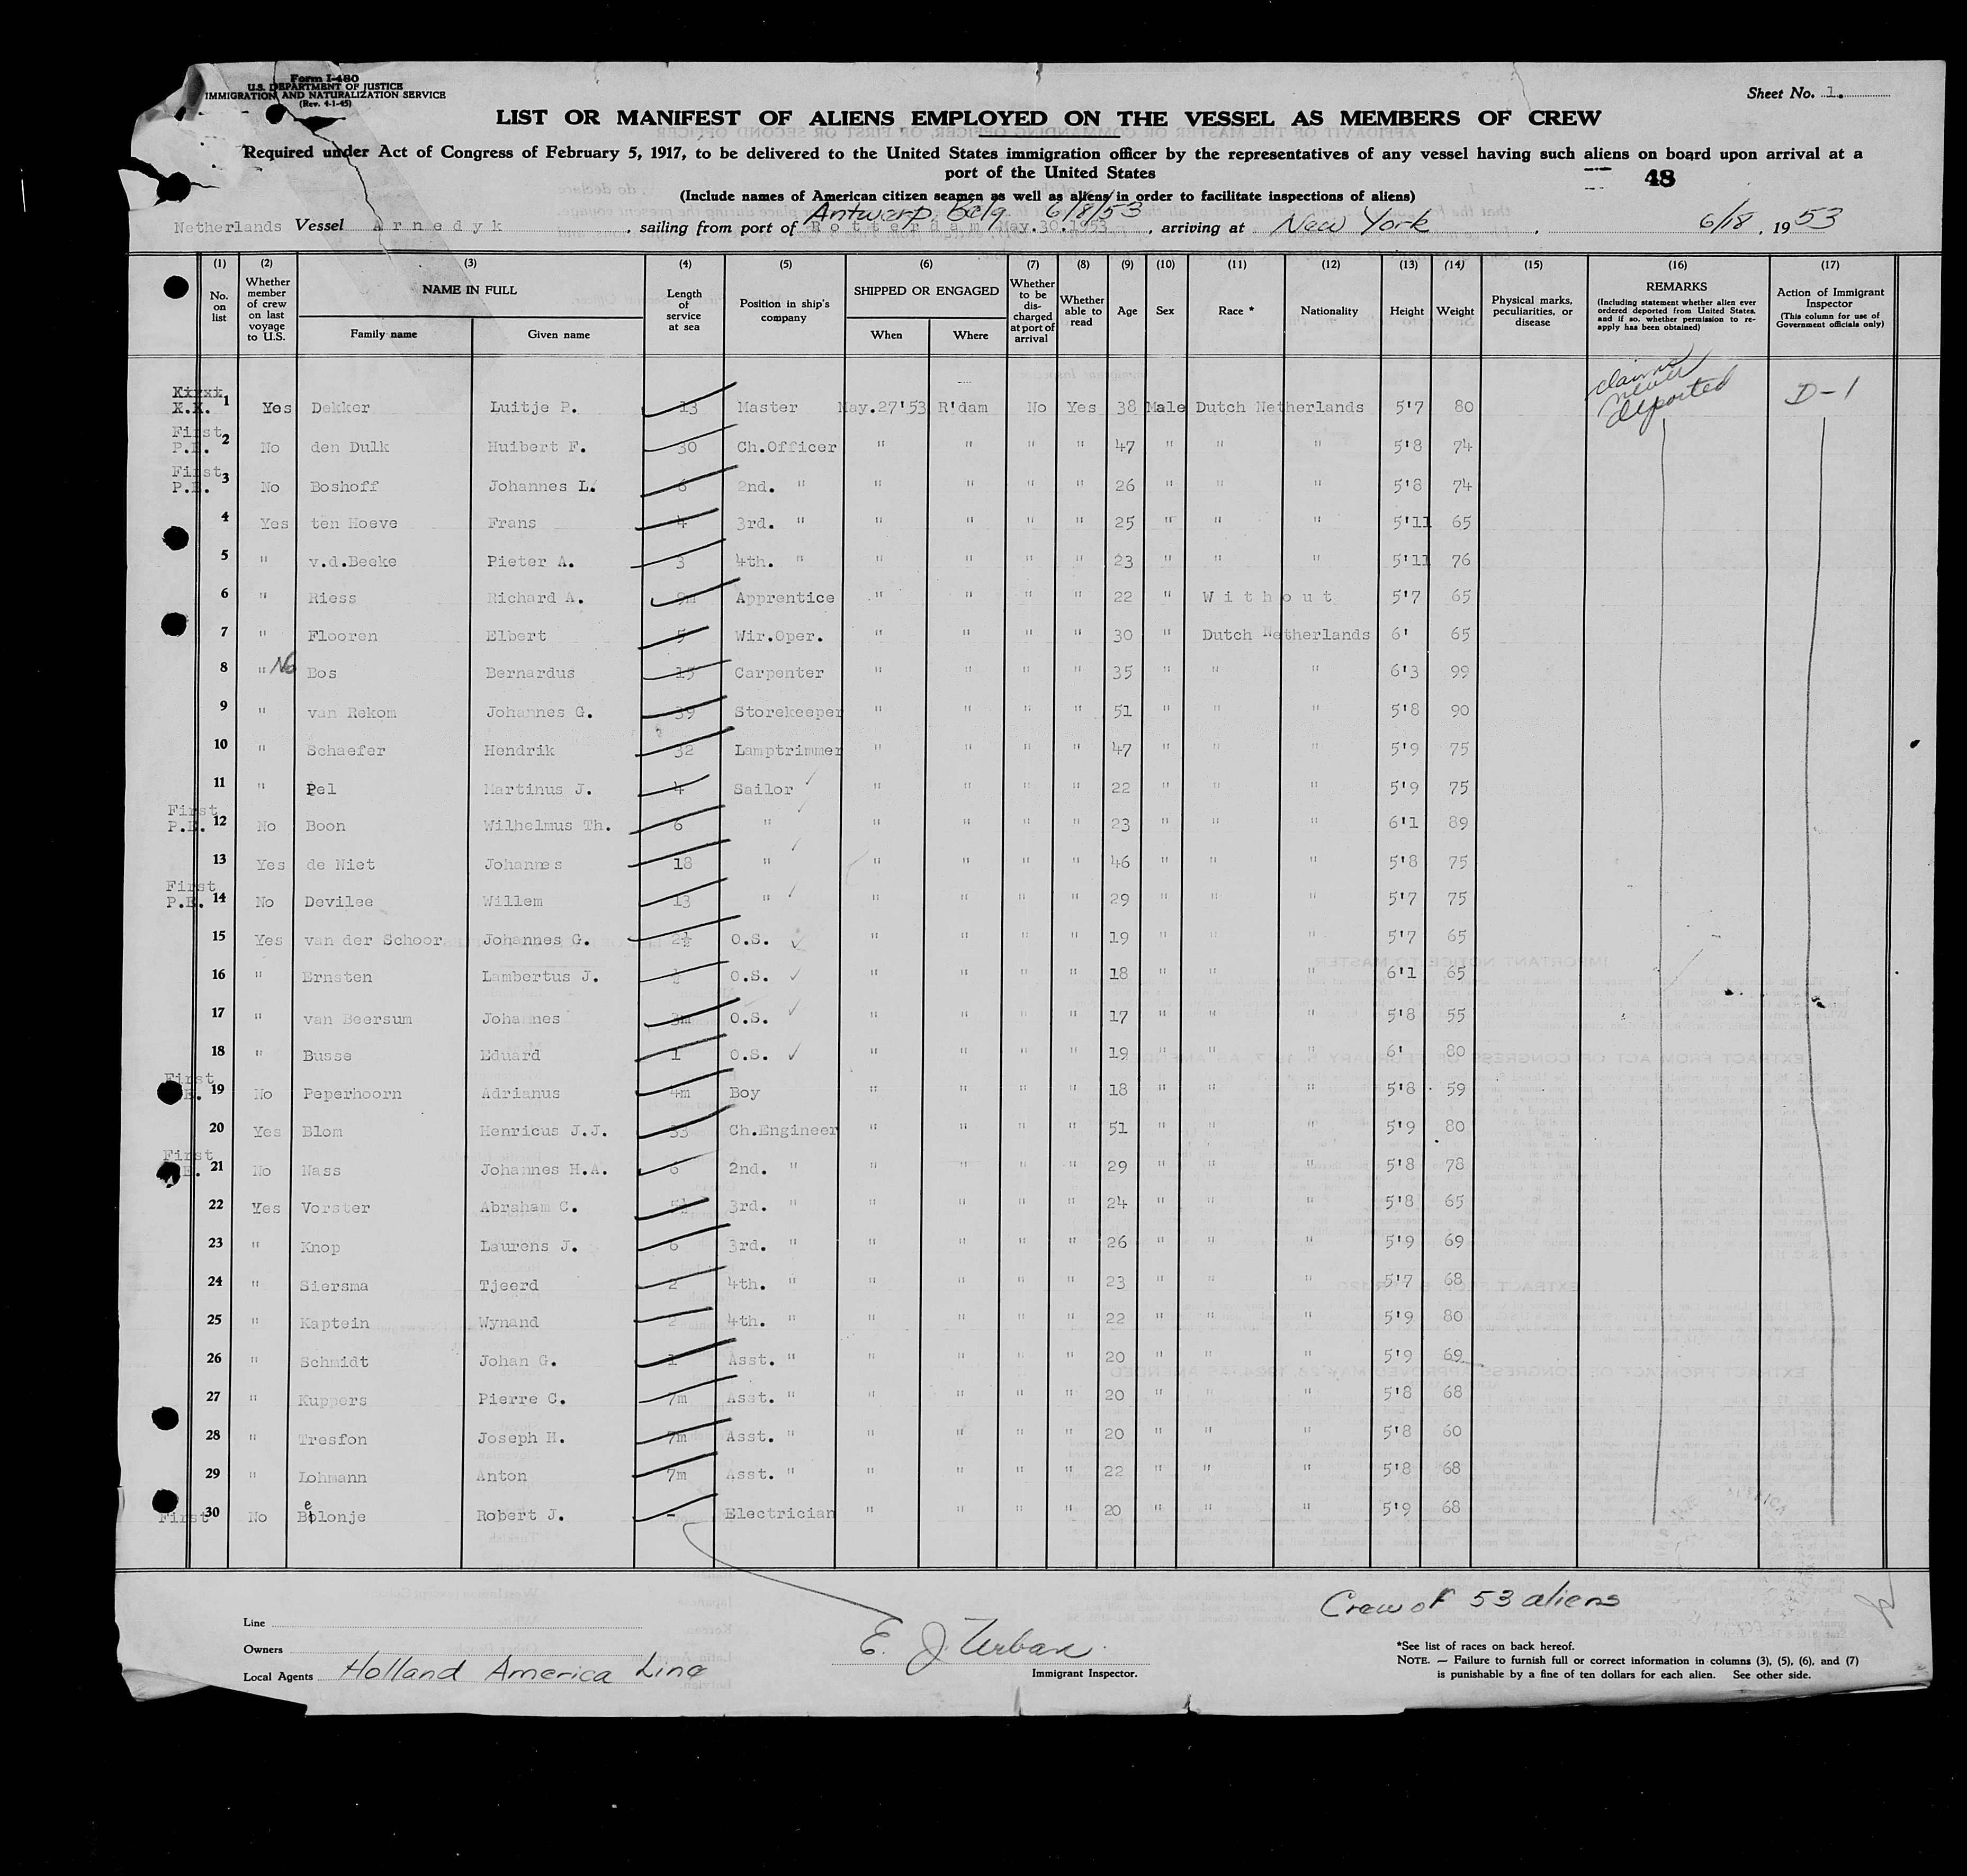 Form I-480
U.S. DEPARTMENT OF JUSTICE
IMMIGRATION AND NATURALIZATION SERVICE
(Rev. 4-1-45)
Sheet No. 1.
LIST OR MANIFEST OF ALIENS EMPLOYED ON THE VESSEL AS MEMBERS OF CREW
Required under Act of Congress of February 5, 1917, to be delivered to the United States immigration officer by the representatives of any vessel having such aliens on board upon arrival at a
port of the United States
48
(Include names of American citizen seamen as well as aliens in order to facilitate inspections of aliens)
Antwerp, Belg 6/8/53
Netherlands Vessel Arnedyk, sailing from port of Rotterdam May.30.1953, arriving at New York, 6/18, 1953
(1) (2) (3) (4) (5) (6) (7) (8) (9) (10) (11) (12) (13) (14) (15) (16) (17)
No. on list
Whether member of crew on last voyage to U.S.
NAME IN FULL
Family name
Given name
Length of service at sea
Position in ship's company
SHIPPED OR ENGAGED
When
Where
Whether to be discharged at port of arrival
Whether able to read
Age
Sex
Race *
Nationality
Height
Weight
Physical marks, peculiarities, or disease
REMARKS
(Including statement whether alien ever ordered deported from United States, and if so, whether permission to reapply has been obtained)
Action of Immigrant Inspector
(This column for use of Government officials only)
claims never deported
D-1
First X.X. 1 Yes Dekker Luitje P. 13 Master May.27'53 R'dam No Yes 38 Male Dutch Netherlands 5'7 80
First P.E. 2 No den Dulk Huibert F. 30 Ch.Officer " " " " 47 " " " 5'8 74
First P.E. 3 No Boshoff Johannes L. 6 2nd. " " " " " 26 " " " 5'8 74
4 Yes ten Hoeve Frans 4 3rd. " " " " " 25 " " " 5'11 65
5 " v.d.Beeke Pieter A. 3 4th. " " " " " 23 " " " 5'11 76
6 " Riess Richard A. 9m Apprentice " " " " 22 " Without 5'7 65
7 " Flooren Elbert 5 Wir.Oper. " " " " 30 " Dutch Netherlands 6' 65
8 " No Bos Bernardus 15 Carpenter " " " " 35 " " " 6'3 99
9 " van Rekom Johannes G. 39 Storekeeper " " " " 51 " " " 5'8 90
10 " Schaefer Hendrik 32 Lamptrimmer " " " " 47 " " " 5'9 75
11 " Pel Martinus J. 4 Sailor " " " " 22 " " " 5'9 75
First P.E. 12 No Boon Wilhelmus Th. 6 " " " " " 23 " " " 6'1 89
13 Yes de Niet Johannes 18 " " " " " 46 " " " 5'8 75
First P.E. 14 No Devilee Willem 13 " " " " " 29 " " " 5'7 75
15 Yes van der Schoor Johannes G. 2½ O.S. " " " " 19 " " " 5'7 65
16 " Ernsten Lambertus J. ½ O.S. " " " " 18 " " " 6'1 65
17 " van Beersum Johannes 3m O.S. " " " " 17 " " " 5'8 55
18 " Busse Eduard 1 O.S. " " " " 19 " " " 6' 80
First E. 19 No Peperhoorn Adrianus 4m Boy " " " " 18 " " " 5'8 59
20 Yes Blom Henricus J.J. 33 Ch.Engineer " " " " 51 " " " 5'9 80
First E. 21 No Nass Johannes H.A. 6 2nd. " " " " " 29 " " " 5'8 78
22 Yes Vorster Abraham C. 5½ 3rd. " " " " " 24 " " " 5'8 65
23 " Knop Laurens J. 6 3rd. " " " " " 26 " " " 5'9 69
24 " Siersma Tjeerd 2 4th. " " " " " 23 " " " 5'7 68
25 " Kaptein Wynand 2 4th. " " " " " 22 " " " 5'9 80
26 " Schmidt Johan G. 1 Asst. " " " " " 20 " " " 5'9 69
27 " Kuppers Pierre C. 7m Asst. " " " " " 20 " " " 5'8 68
28 " Tresfon Joseph H. 7m Asst. " " " " " 20 " " " 5'8 60
29 " Lohmann Anton 7m Asst. " " " " " 22 " " " 5'8 68
First 30 No Belonje Robert J. - Electrician " " " " 20 " " " 5'9 68
Crew of 53 aliens
Line
Owners
Local Agents Holland America Line
E. J. Urban
Immigrant Inspector.
*See list of races on back hereof.
NOTE. — Failure to furnish full or correct information in columns (3), (5), (6), and (7)
is punishable by a fine of ten dollars for each alien. See other side.